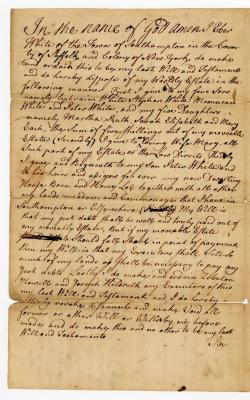 In the name of God amen I Peter
White of the Town of Southampton in the Coun
ty of Suffolk and Colony of New York, do make
and ordain this to be my last Will and Testament
and do hereby dispose of my Worldly Estate in the
following manner. First I give to my five Sons
namely Ephraim White Stephen White
White and Peter White and my four Daughters
namely Martha Ruth Sarah Elizabeth and Mary
Each, the Sum of five Shillings out of my moveable
Estate I give to Loving Wife Mary all
Such part of Estate as the Law Directs
I give and Bequeath to my Son Peter White and
to his heirs and assigns for ever my now Dwelling
House Barn and Home Lott together with all other
my lands meadows and Commonage that I have in
Southampton or Elsewhere My Will is
that my just debts shall be well and truly paid out of
my moveable Estate, But if my moveable Estate
Should fall Short in point of payment
then my Will is that my Executors Shall Sell So
much of my lands as Shall be necessary to pay my
Just debts Lastly I do make and ordain Zebulon
Howell and Joseph Hildreth my Executors of this
my last Will and Testament and I do hereby
utterly revoke disannul and make Void all
former or other Will or Wills by me before
made and do make this and no other to be my last
Will and Testament
In